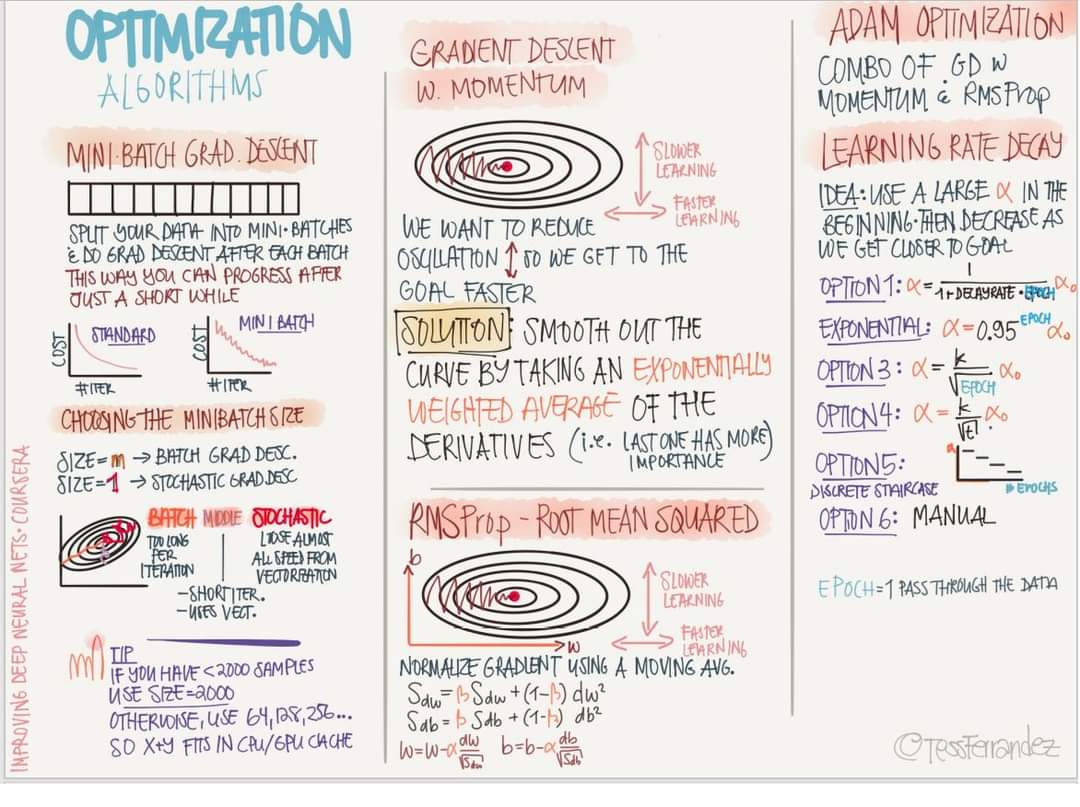 OPTIMIZATION
ALGORITHMS
MINI-BATCH GRAD. DESCENT
SPLIT YOUR DATA INTO MINI-BATCHES
& DO GRAD DESCENT AFTER EACH BATCH
THIS WAY YOU CAN PROGRESS AFTER
JUST A SHORT WHILE
COST
STANDARD
# ITER
COST
MINI BATCH
# ITER
CHOOSING THE MINIBATCH SIZE
SIZE=m → BATCH GRAD DESC.
SIZE=1 → STOCHASTIC GRAD DESC
BATCH MIDDLE STOCHASTIC
TOO LONG
PER
ITERATION
LOSE ALMOST
ALL SPEED FROM
VECTORIZATION
-SHORT ITER.
-USES VECT.
TIP
IF YOU HAVE <2000 SAMPLES
USE SIZE=2000
OTHERWISE, USE 64,128,256...
SO X+Y FITS IN CPU/GPU CACHE
IMPROVING DEEP NEURAL NETS · COURSERA
GRADIENT DESCENT
W. MOMENTUM
SLOWER
LEARNING
FASTER
LEARNING
WE WANT TO REDUCE
OSCILLATION ↕ SO WE GET TO THE
GOAL FASTER
SOLUTION: SMOOTH OUT THE
CURVE BY TAKING AN EXPONENTIALLY
WEIGHTED AVERAGE OF THE
DERIVATIVES (i.e. LAST ONE HAS MORE)
IMPORTANCE
RMSProp - ROOT MEAN SQUARED
b
w
SLOWER
LEARNING
FASTER
LEARNING
NORMALIZE GRADIENT USING A MOVING AVG.
Sdw = β Sdw + (1-β) dw²
Sdb = β Sdb + (1-β) db²
w = w - α dw/√Sdw b = b - α db/√Sdb
ADAM OPTIMIZATION
COMBO OF GD W
MOMENTUM & RMSProp
LEARNING RATE DECAY
IDEA: USE A LARGE α IN THE
BEGINNING·THEN DECREASE AS
WE GET CLOSER TO GOAL
OPTION 1: α = 1/1+DECAYRATE·EPOCH α₀
EXPONENTIAL: α = 0.95^EPOCH α₀
OPTION 3: α = k/√EPOCH α₀
OPTION 4: α = k/√t α₀.
OPTION 5:
DISCRETE STAIRCASE
α
# EPOCHS
OPTION 6: MANUAL
EPOCH = 1 PASS THROUGH THE DATA
©TessFerrandez